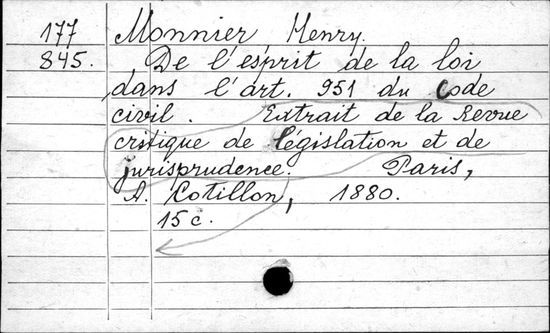 177 Monnier, Henry.
845. De l'esprit de la loi
dans l'art. 951 du Code
civil. Extrait de la Revue
critique de législation et de
jurisprudence. Paris,
A. Cotillon, 1880.
15 c.